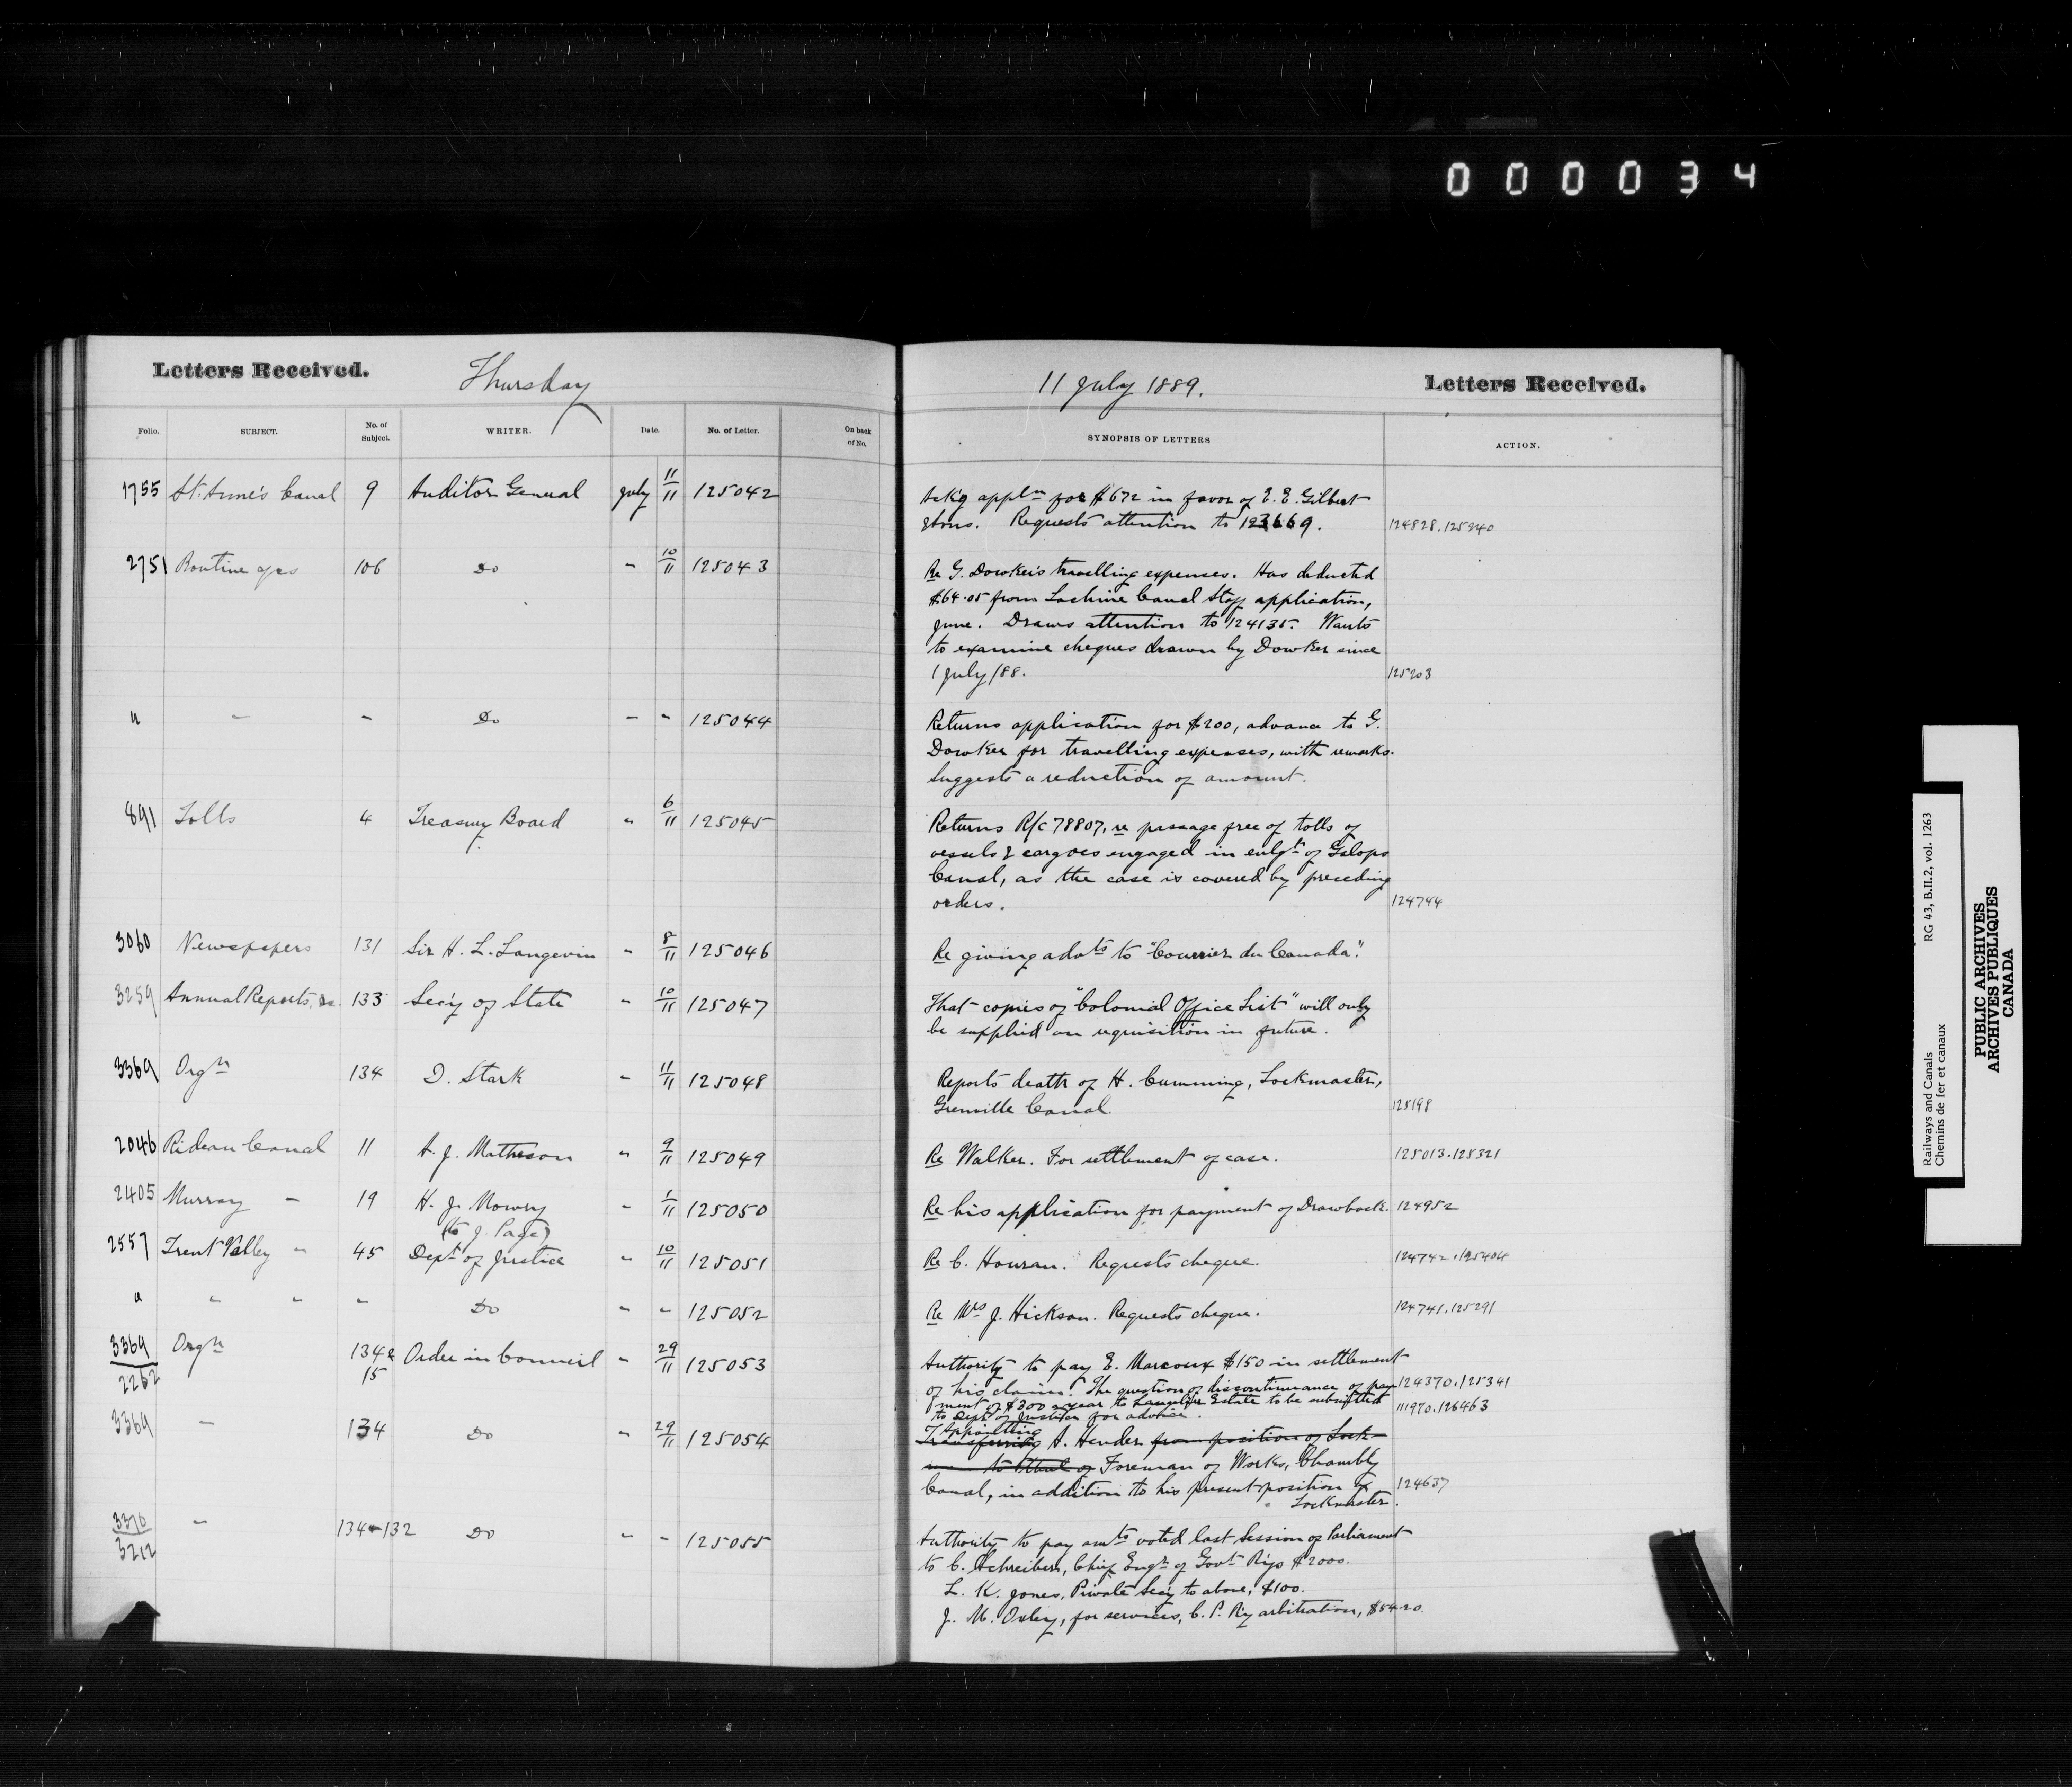 0 0 0 0 3 4
Letters Received. Thursday 11 July 1889. Letters Received.
Folio. SUBJECT. No. of Subject. WRITER. Date. No. of Letter. On back of No. SYNOPSIS OF LETTERS ACTION.
1755 St. Anne's Canal 9 Auditor General July 11/11 125042
Ackg appln for $672 in favor of E. E. Gilbert
& Sons. Requests attention to 123669. 124828.125240
2751 Routine 106 Do - 10/11 125043
Re G. Dowker's travelling expenses. Has deducted
$64.05 from Lachine Canal Staff application,
June. Draws attention to 124135. Wants
to examine cheques drawn by Dowker since
1 July/88. 125203
" - - Do - - 125044
Returns application for $200, advance to G.
Dowker for travelling expenses, with remarks.
Suggests a reduction of amount.
891 Tolls 4 Treasury Board " 6/11 125045
Returns R/C 78807, re passage free of tolls of
vessels & cargoes engaged in enlgt of Galops
Canal, as the case is covered by preceding
orders. 124744
3060 Newspapers 131 Sir H. L. Langevin - 8/11 125046
Re giving advts to "Courrier du Canada".
3259 Annual Reports, &c. 133 Secy of State " 10/11 125047
That copies of "Colonial Office List" will only
be supplied on requisition in future.
3369 Orgn 134 D. Stark - 11/11 125048
Reports death of H. Cumming, Lockmaster,
Grenville Canal. 125198
2046 Rideau Canal 11 A. J. Matheson " 9/11 125049
Re Walker. For settlement of case. 125013.125321
2405 Murray - 19 H. J. Mowry - 1/11 125050
(to J. Page)
Re his application for payment of Drawback. 124952
2557 Trent Valley " 45 Dept of Justice " 10/11 125051
Re C. Houran. Requests cheque. 124742.125404
" " " " Do - - 125052
Re Mrs J. Hickson. Requests cheque. 124741.125291
3369/2262 Orgn 134 & 15 Order in Council - 29/11 125053
Authority to pay E. Marcoux $150 in settlement
of his claim. The question of discontinuance of pay- 124370.125341
ment of $200 a year to Estate to be submitted 111970.126463
to Dept of Justice for advice.
3369 - 134 Do " 29/11 125054
Appointing
Transferring A. Hender from position of Lock-
to that of Foreman of Works, Chambly
Canal, in addition to his present position of 124637
Lockmaster.
3370/3212 - 134-132 Do " - 125055
Authority to pay amts voted last Session of Parliament
to C. Schreiber, Chief Engr of Govt Rys $2000.
L. K. Jones, Private Secy to above, $100.
J. M. Oxley, for services, C. P. Ry arbitration, $5420.
RG 43, B.II.2, vol. 1263
Railways and Canals
Chemins de fer et canaux
PUBLIC ARCHIVES
ARCHIVES PUBLIQUES
CANADA